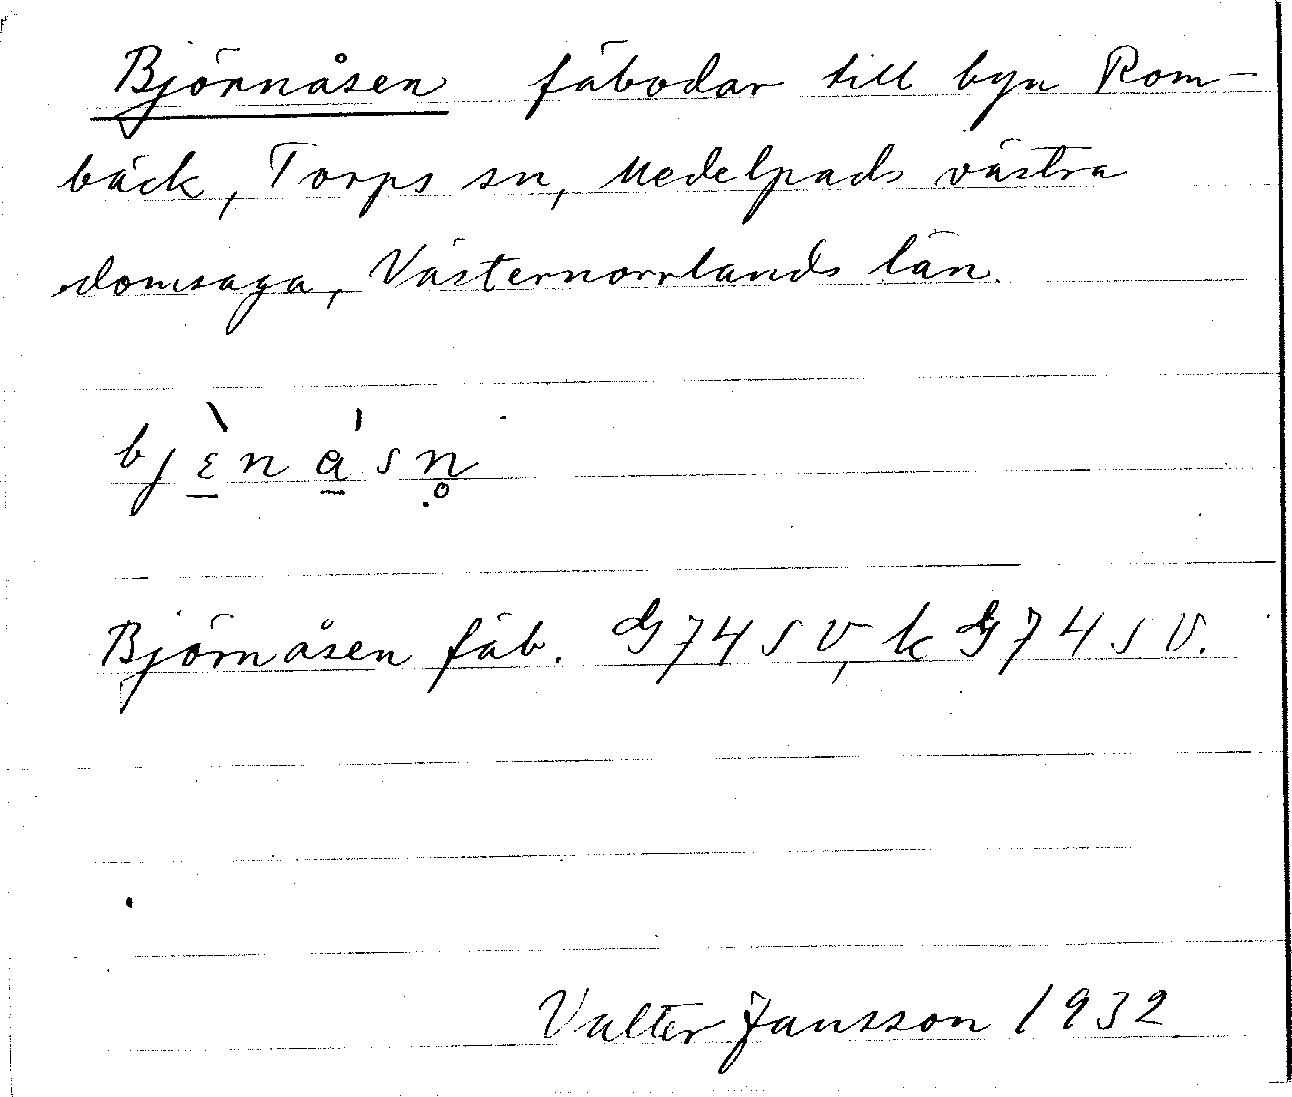 Björnåsen fäbodar till byn Rom-
bäck, Torps sn, Medelpads västra
domsaga, Västernorrlands län.
bjɛ̠̀ná̠sn̥
Björnåsen fäb. G 74 SV, k G 74 SV.
Valter Jansson 1932